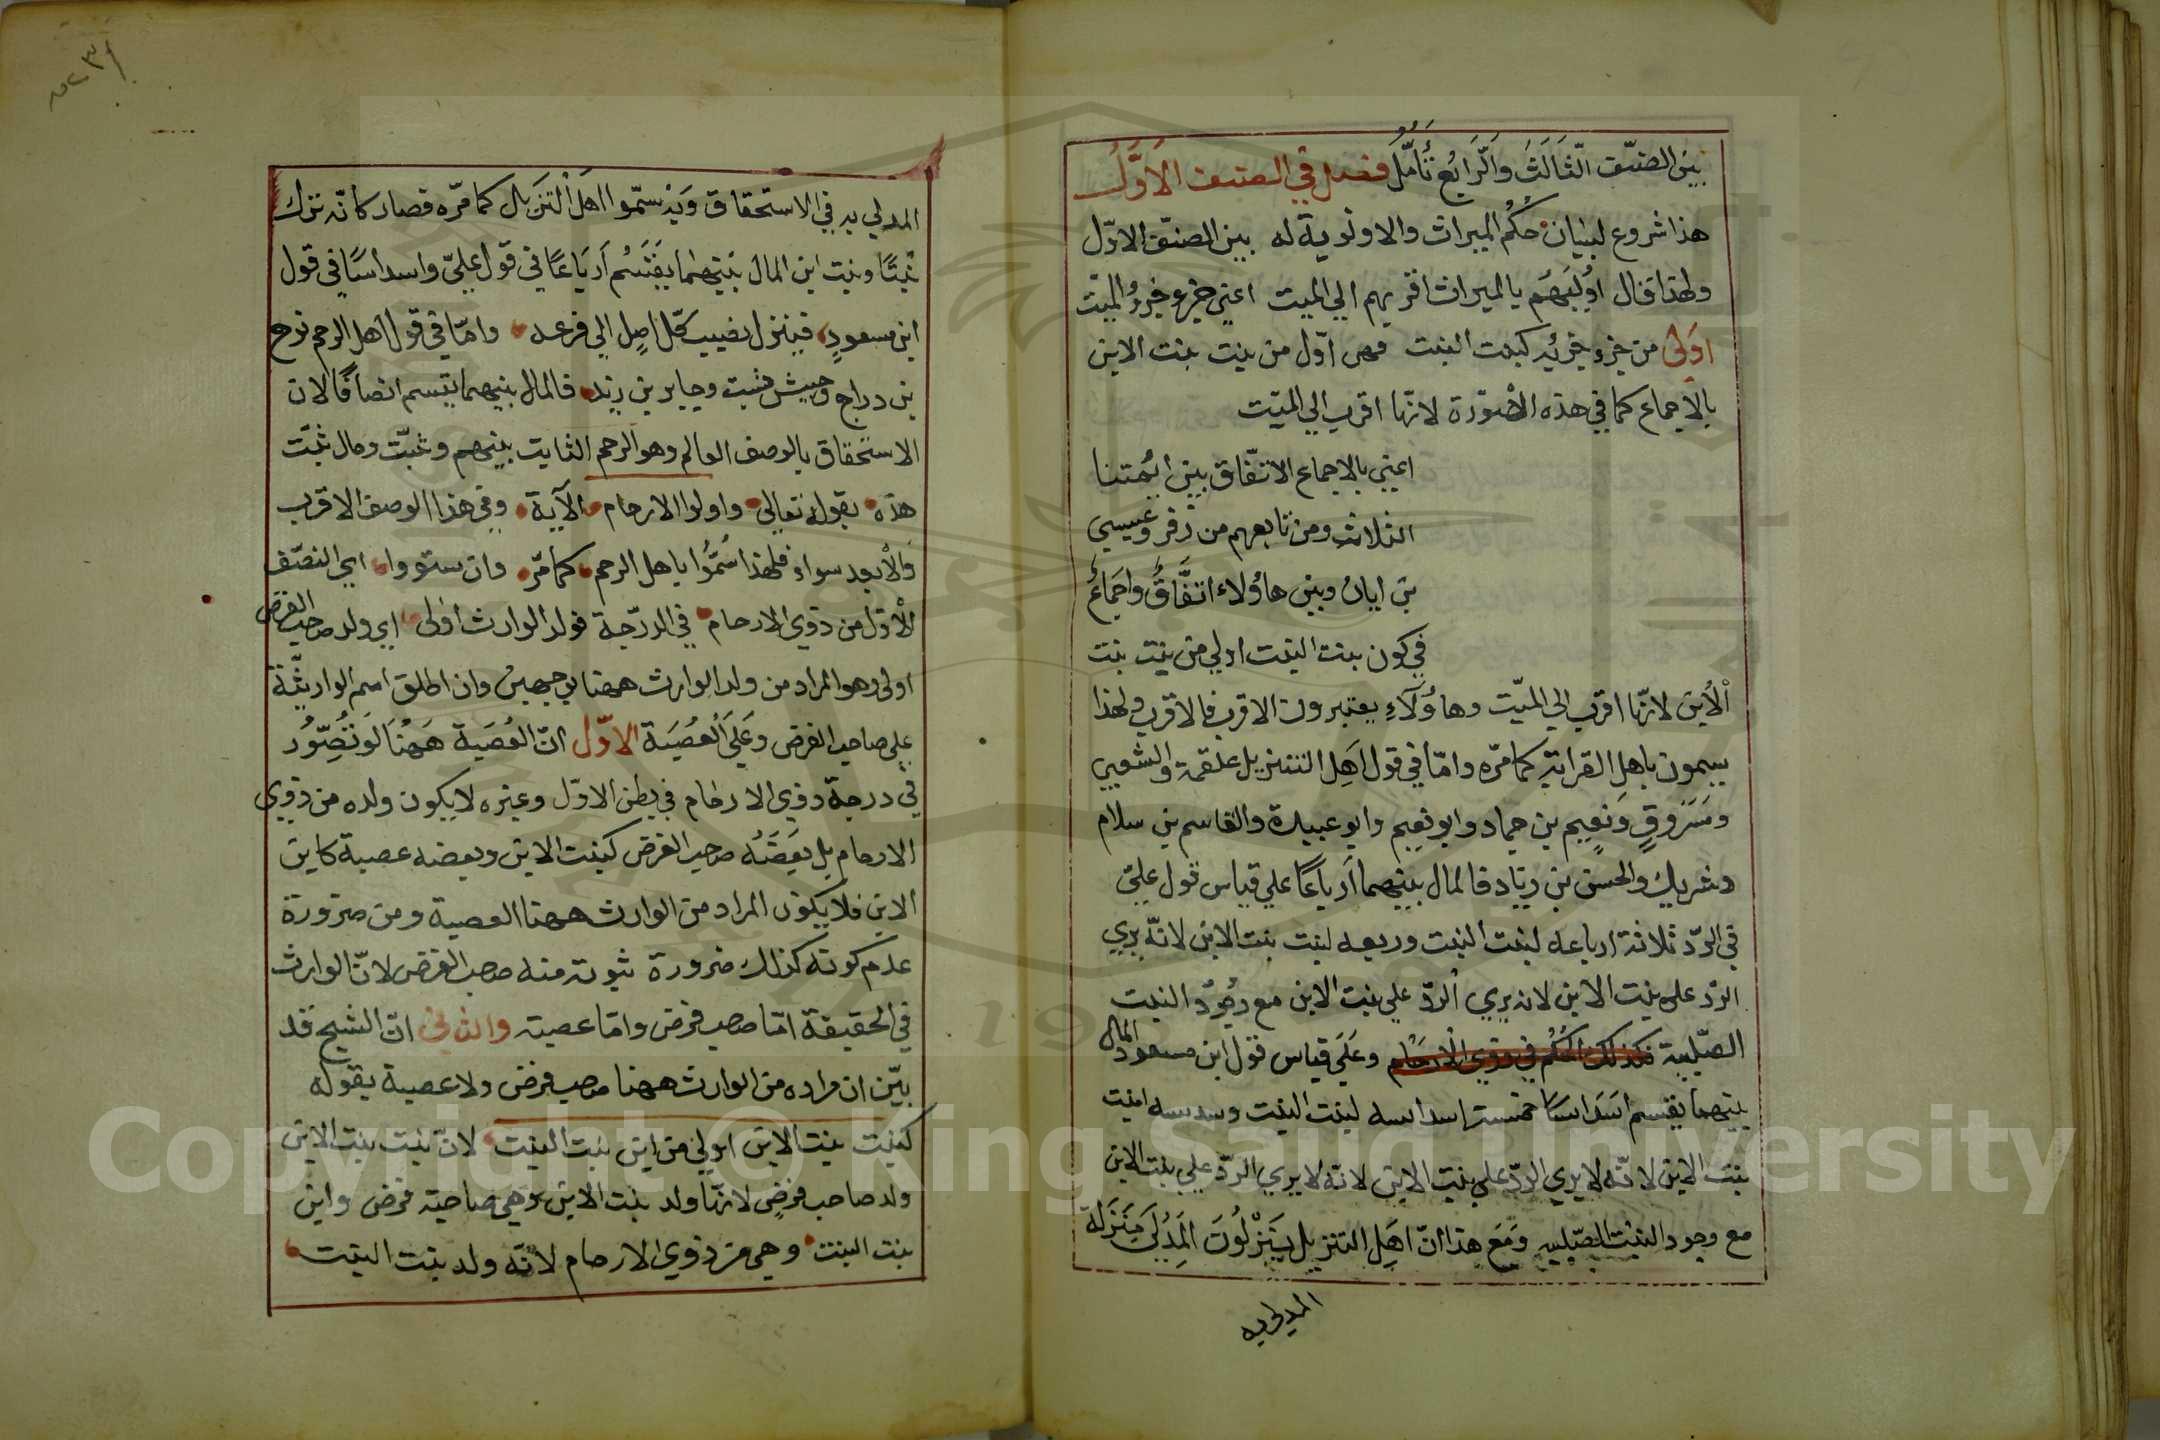 بين الصنف الثَالَثَ وَالَّرَابُع تَأمَّلُ فصل في الصنف الاَوَّلُ
هذا شروع لبيان حُكُم الميراث والاولوية له بين الصنف الاوّل
ولهذا قال اوُليَهَم بالميراث اقربهم الي الميت اعني جزء جزءُ الميّت
اوَلى من جزء جزئه كبنت البنت فهى اوّل من بنت بنت الابن
بالاجماع كما في هذه الصّورة لانّها اقرب الي الميّت
اعني بالاجماع الاتّفاق بين ايمتنا
الثلاث ومن تابعهم من زفر وعيسي
بن ابان وبين هاوُلاء اتفَّاقٌ واجَماعٌ
في كون بنت البنت اولي من بنت بنت
الْابن لانّها اقرب الي الميّت وهاوُلَآءِ يعتبرون الاقرب فالاقرب ولهذا
يسمون باهل القرابة كما مرّه وامّا في قول اهَل التنزيل علقمة والشعبي
ومَسَروقٍ وَنعِيم بن حماد وابو نعيم وابو عبيدة والقاسم بن سلام
وشريك والحسن بن زياد فالمال بينهما اَرباعًا علي قياس قول عليّ
في الردّ ثلاثة ارباعه لبنت البنت وربعه لبنت بنت الابن لانّه يري
الردّ على بنت الابن لانه يري الردّ علي بنت الابن مع وجُوْد البنت
الصّلبية فكذلك الحُكُم في ذوي الْارحَام وعَلَى قياس قول ابن مسعود المال
بينهما يقسم اسَداسًا خمسة اسداسه لبنت البنت وسدسه لبنت
بنت الابن لانّه لا يري الردّ على بنت الابن لانه لا يري الردّ علي بنت الابن
مع وجود البنت الصّلبيه وَمَع هذا انّ اهَل التنزيل يَنَزْلوُنَ المِدُلَى مَنَزلَة
المدلي به
المدلي به في الاستحقاق وَبه سمّوا اهَل الْتنَزيل كما مرّه فصار كانّه ترك
بنتًا وبنت ابن المال بينهما يقَتسُم اَربَاعًا في قوَل عليّ واسداسًا في قول
ابن مسعودٍ فينزل نصيب كلّ اصل الي فرعه وامّا في قول اهل الرحم نوح
بن دراج وحبيش مبشت وجابر بن زيد فالمال بينهما يقسم انصافًا لان
الاستحقاق بالوصف العالم وهو الرحم الثابت بينهم وثبّت ومال ثبَتّ
هذه بقوله تعالى واولوا الارحام الآية وفي هذا الوصف الاقرب
والْابعد سواء فلهذا سُمّوُا باهل الرحم كما مرّ وان ستووا اي النصّف
الْاوّل من ذوي الارحام في الدرّجة فولد الوارث اوَلى اي ولد صاحب الفرض
اولى وهو المراد من ولد الوارث ههنا بوجهين وان اطلق اسم الوارثيّة
علي صاحب الفرض وَعَلَى الْعُصَبَة الاوّل انّ العُصَبَة هَهَنُا لوَتُصَّوُر
في درجة ذوي الارحام في بطن الاوّل وغيره لا يكون ولده من ذوي
الارحام بل يعَضَهُ صاحب الفرض كبنت الابن وبعضه عصبة كابن
الابن فلا يكون المراد من الوارث ههنا العصبة ومن ضرورة
عدم كونه كذلك ضرورة ثبوته منه صاحب الفرض لانّ الوارث
في الحقيقة امّا صاحب فرض وامّا عصبته والثاني انّ الشيخ قد
بيّن ان مراده من الوارث ههنا صاحب فرض ولا عصبة بقوله
كبنت بنت الابن اولي من ابن بنت البنت لانّ بنت بنت الابن
ولد صاحب فرضٍ لانّها ولد بنت الابن وهي صاحبة فرض وابن
بنت البنت وهي من ذوي الارحام لانّه ولد بنت البنت
Copyright © King Saud University